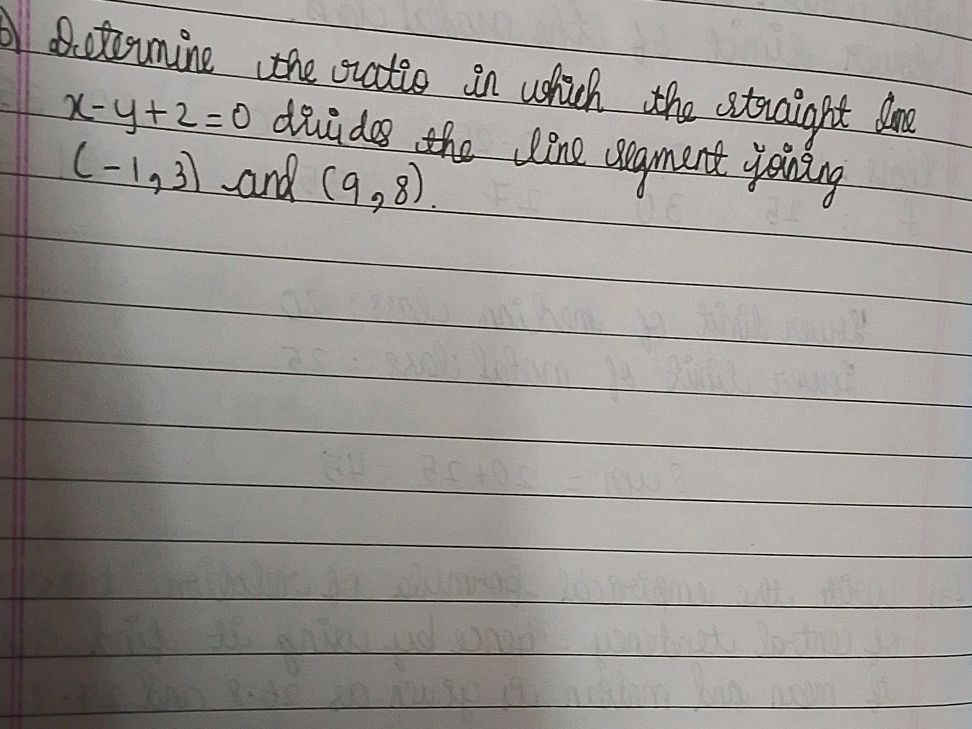 b) Determine the ratio in which the straight line
x-y+2=0 divides the line segment joining
(-1,3) and (9,8).